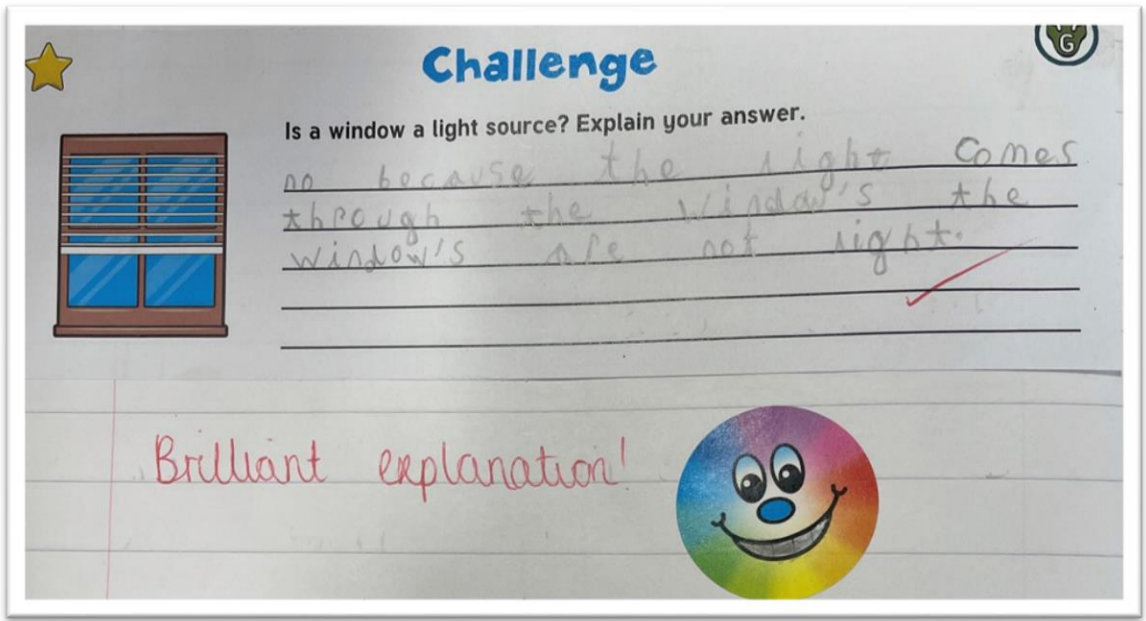 G
Challenge
Is a window a light source? Explain your answer.
no because the light comes
through the window's the
window's are not light.
Brilliant explanation!